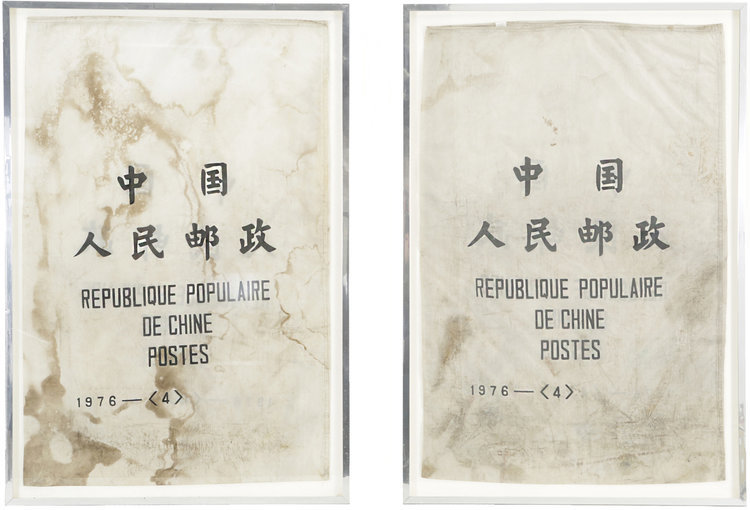 中国
人民邮政
REPUBLIQUE POPULAIRE
DE CHINE
POSTES
1976—〈4〉
中国
人民邮政
REPUBLIQUE POPULAIRE
DE CHINE
POSTES
1976—〈4〉